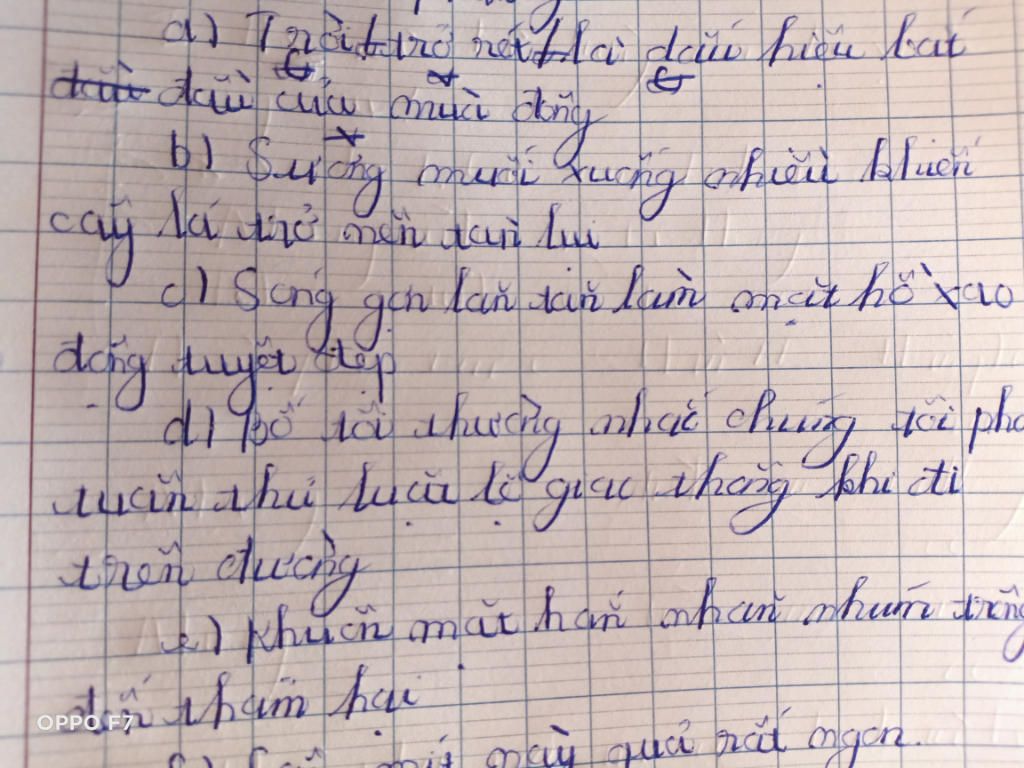 a) Trời trở rét là dấu hiệu bắt
đầu của mùa đông
b) Sương muối xuống nhiều khiến
cây lá trở nên tàn lụi
c) Sóng gợn lăn tăn làm mặt hồ xao
động tuyệt đẹp
d) Bố tôi thường nhắc chúng tôi phả
tuân thủ luật lệ giao thông khi đi
trên đường
e) Khuôn mặt hắn nhăn nhúm trông
đến thảm hại
mít này quả rất ngon.
OPPO F7